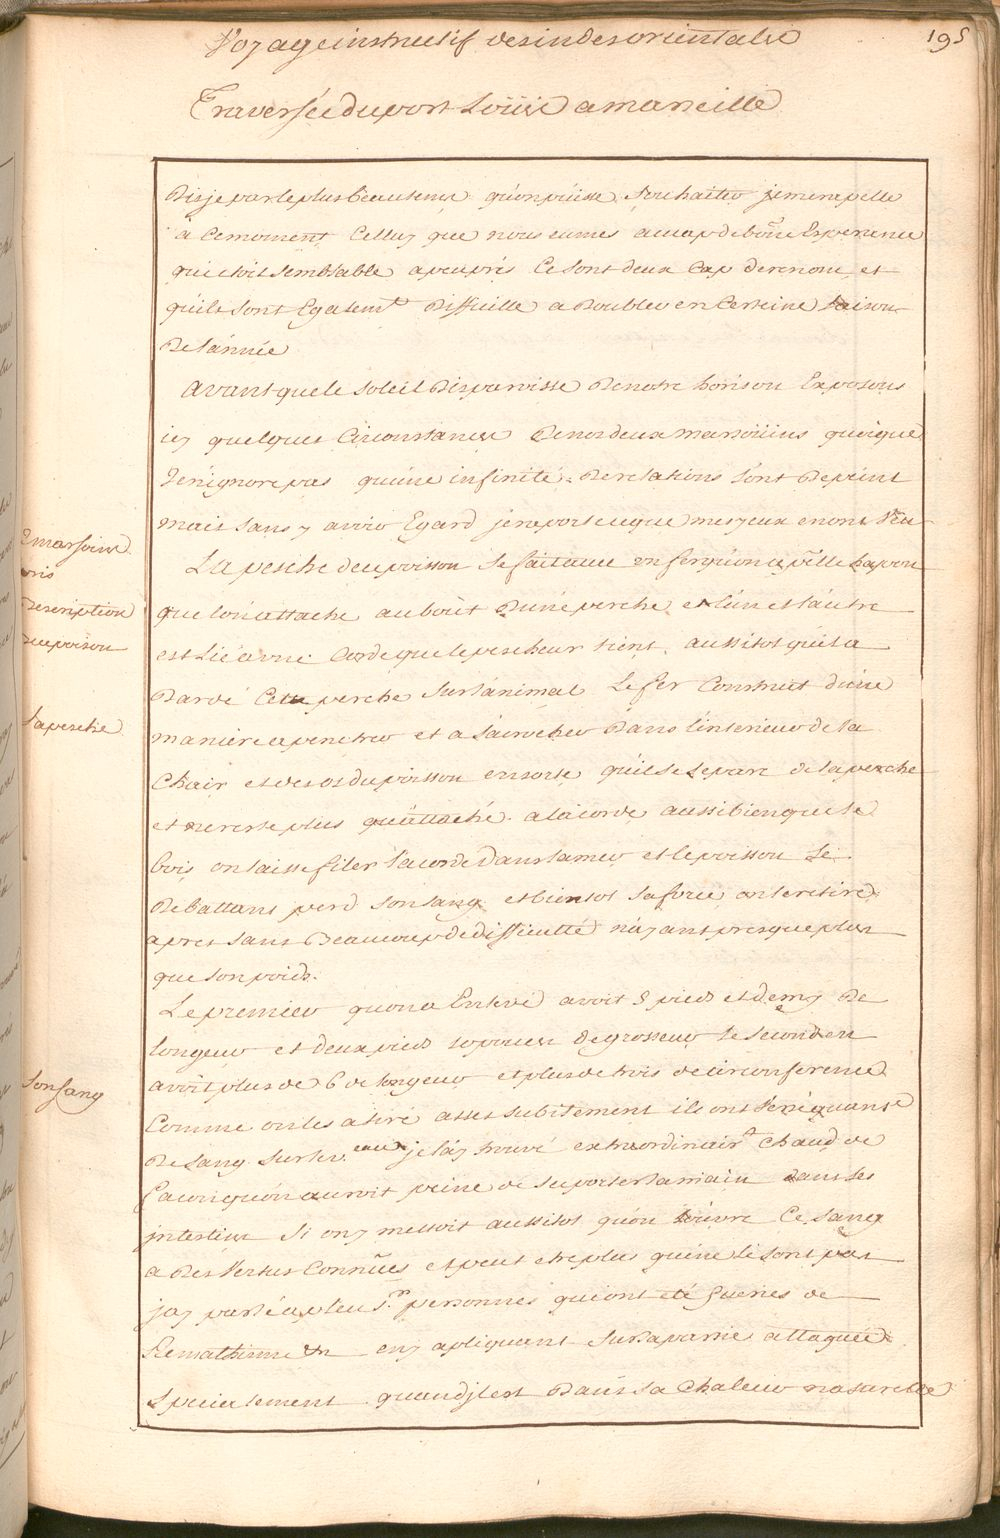 Voyage instructif des indes orientales
195
Traversée du port Loüis a marseille
Dis je par le plus beau tems qu'on puisse souhaiter je me rapelle
a ce moment Celluy que nous eumes au cap de boñe Esperence
qui etoit semblable a peu prés Ce sont deux Cap de renom et
qu'ils sont Egalemt. Difficille a Doubler en Certeine saison
De l'année
avant que le soleil Disparoisse De notre horison Exposons
icy quelques Circonstances De nos deux marsoüins quoique
J'en ignore pas qu'une infinité De relations s'ont Depeint
mais sans y avoir Egard je raporte ce que mes yeux en ont Veu
2 marsoins
pris
La pesche de ce poisson se fait avec un fer qu'on apelle hapon
Description
que lon attache au bout D'une perche et l'un et l'autre
du poison
est Lié a une Corde que le pescheur tient, aussitot qu'il a
Dardé Cette perche sur l'animal Le fer Construit d'une
La pesche
maniere a penetrer et a s'acrocher Dans l'interieur de la
Chair et des os du poisson en sorte qu'il se separe de la perche
et ne reste plus qu'attaché a la corde aussi bien que le
bois on laisse filer la corde Dans la mer et le poisson se
Debattant perd son sang et bientot sa force on le retire
apres sans Beaucoup de difficulté n'ayant presque plus
que son poids.
Le premier qu'on a Enlevé avoit 5 pieds et demy De
longeur et deux pieds 10 pouces De grosseur le second en
avoit plus de 6 de longeur et plus de trois de circonference
Son sang
Comme on les a tiré asses subitement ils ont
De sang sur les eaux je l'ay trouvé extraordinairt. chaud de
facon qu'on auroit peine de suporter la main Dans les
intestins si on y mettoit aussitot qu'on l'ouvre Ce sang
a Des Vertus Connües et peut etre plus qu'une le sont pas
jay parlé a plusrs. personnes qui ont eté Gueries de
en y apliquant sur la partie attaquée
specialement quand il est Dans sa Chaleur naturelle